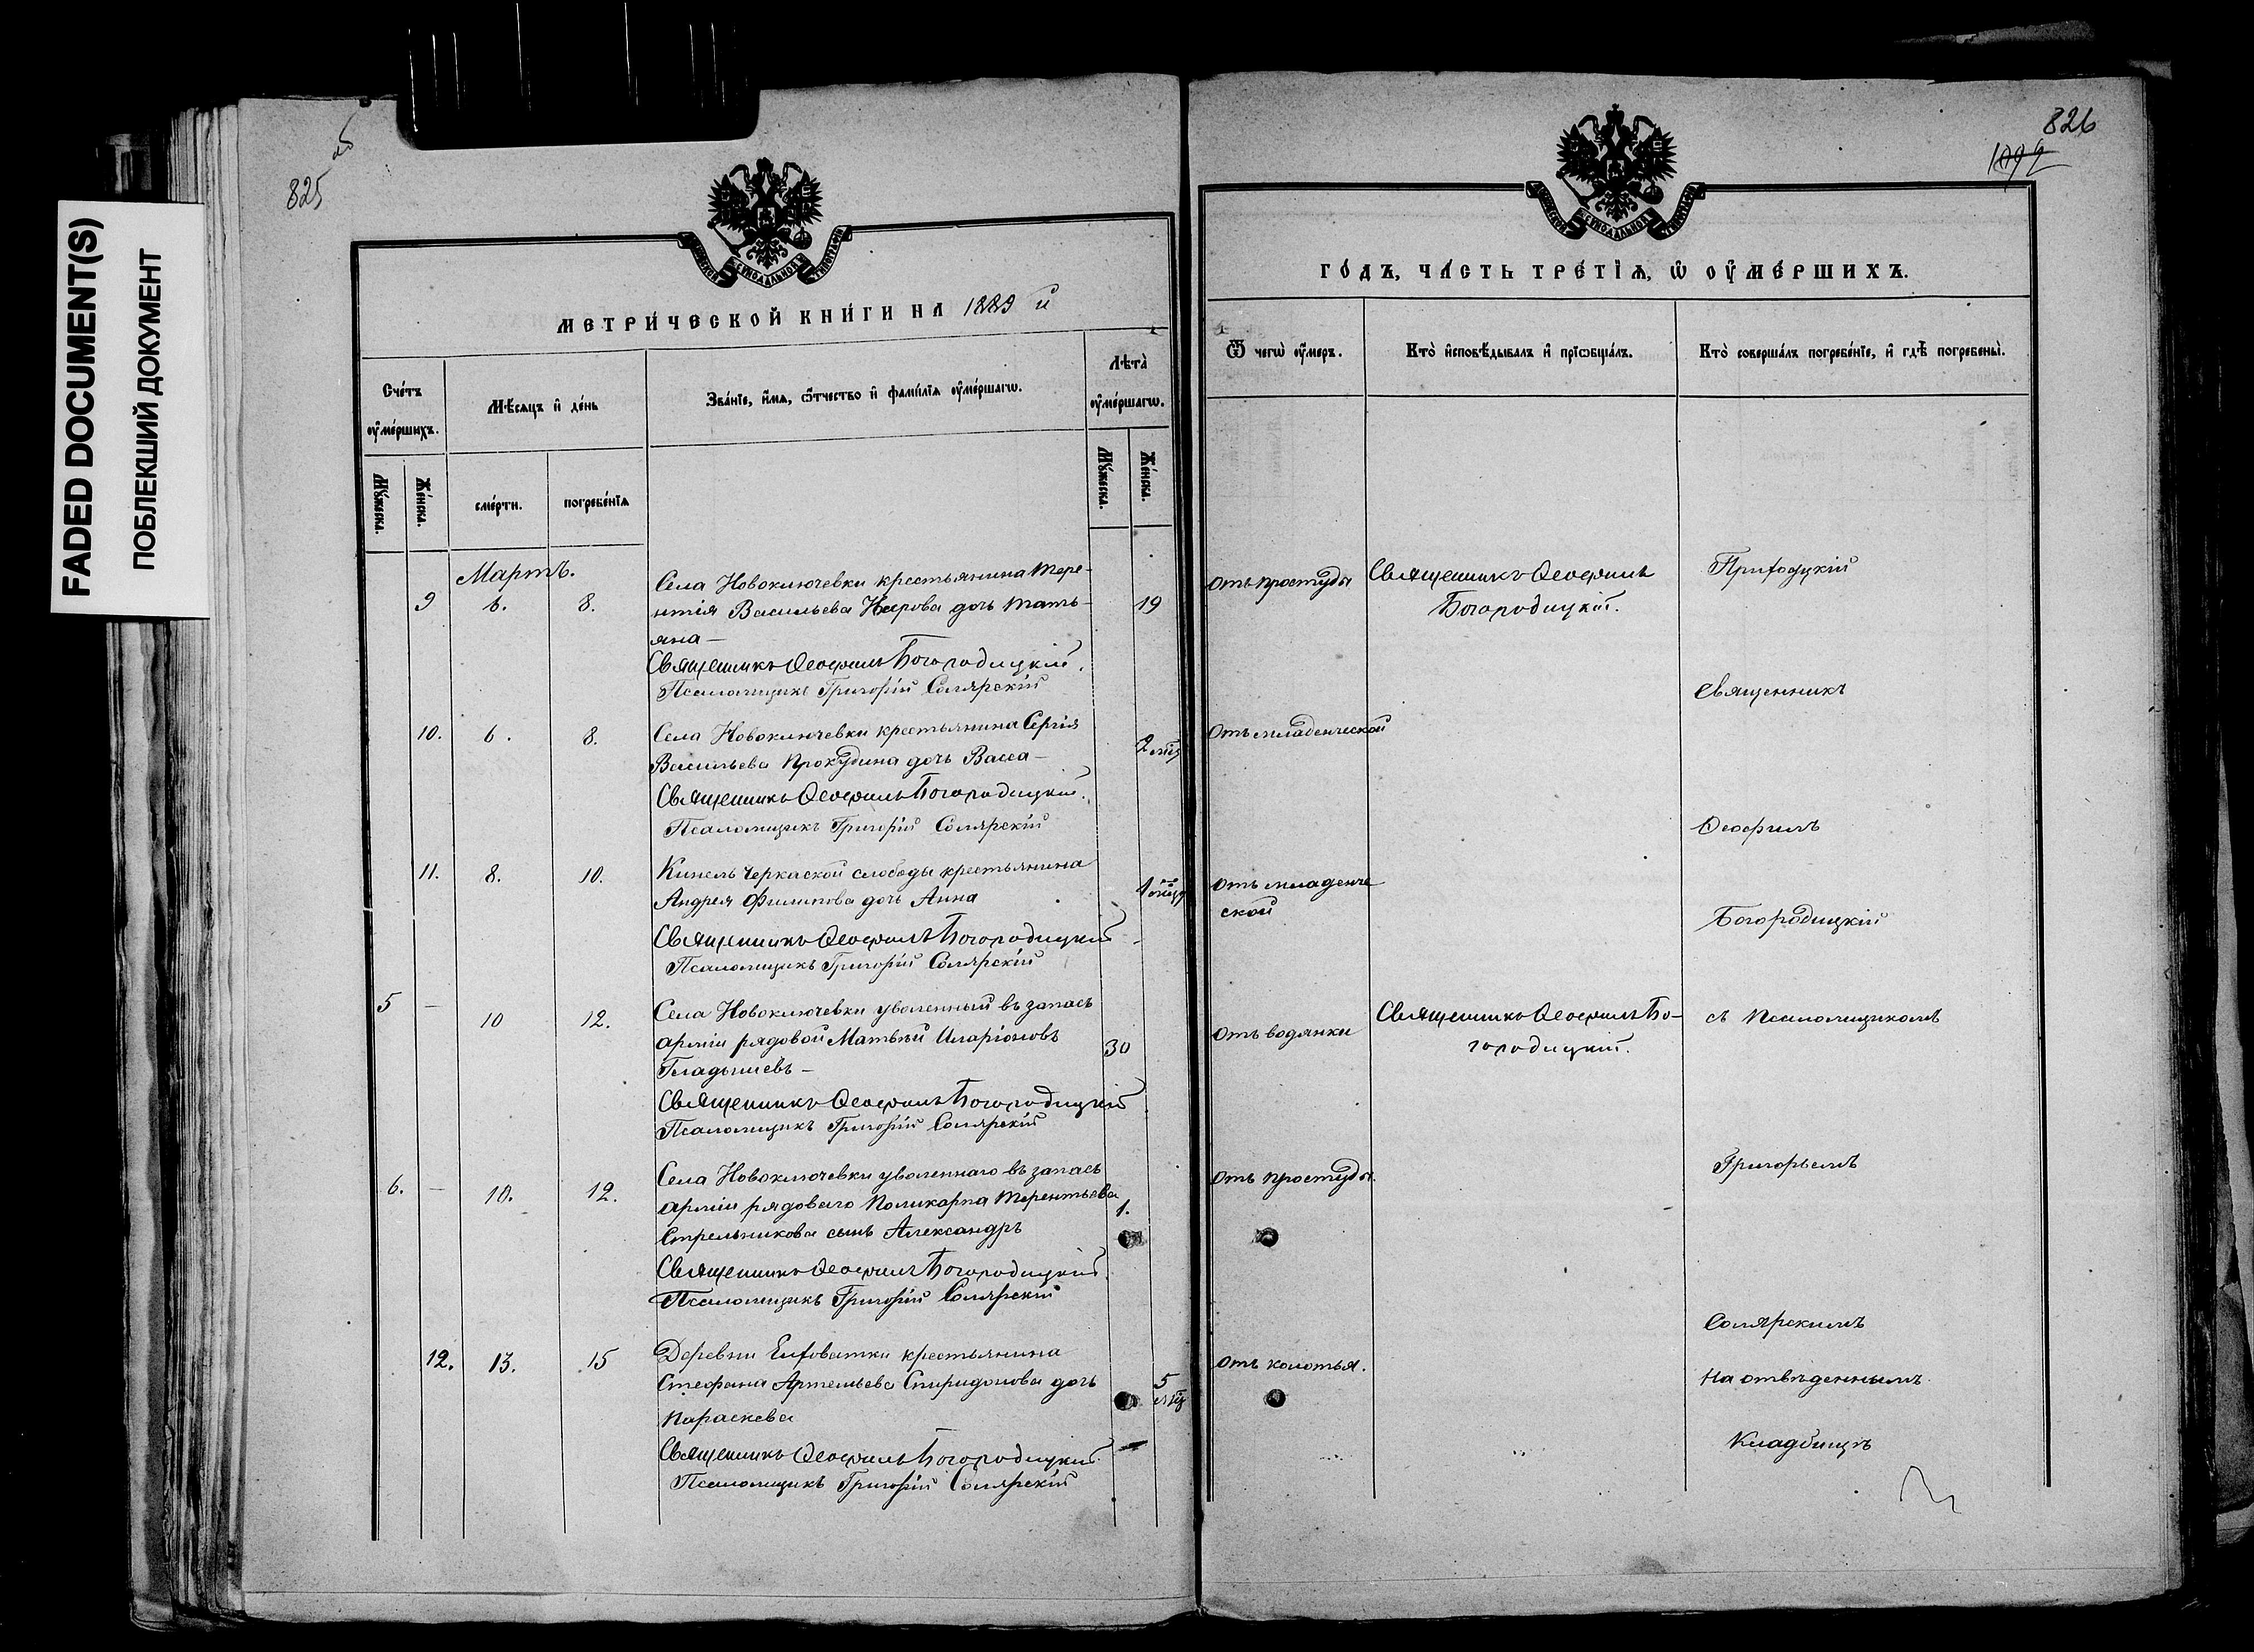 FADED DOCUMENT(S)
ПОБЛЕКШИЙ ДОКУМЕНТ
825
МЕТРИ́ЧЕСКОЙ КНИ́ГИ НА 1889 й
Сче́тъ ᲂу҆ме́ршихъ.
Мѣ́сяцъ и҆ де́нь
Зва́нїе, и҆́мѧ, ѻ҆́тчество и҆ фами́лїѧ ᲂу҆ме́ршагѡ.
Лѣта̀ ᲂу҆ме́ршагѡ.
Мꙋ́жеска.
Же́нска.
сме́рти.
погребе́нїѧ
Мꙋ́жеска.
Же́нска.
Мартъ.
9 6. 8. 19
Села Новоключевки крестьянина Тере-
нтія Васильева дочь Тать-
яна
Священникъ Ѳеофилъ Богородицкій.
Псаломщикъ Григорій Солярскій
10. 6. 8. 2 мѣс
Села Новоключевки крестьянина Сергія
Васильева Прокудина дочь Васса
Священникъ Ѳеофилъ Богородицкій.
Псаломщикъ Григорій Солярскій
11. 8. 10. 1
Кинель Черкаской слободы крестьянина
Андрея Филипова дочь Анна
Священникъ Ѳеофилъ Богородицкій
Псаломщикъ Григорій Солярскій
5 – 10 12. 30
Села Новоключевки уволенный въ запасъ
арміи рядовой Матвѣй Иларіоновъ
Гладышевъ
Священникъ Ѳеофилъ Богородицкій
Псаломщикъ Григорій Солярскій
6. – 10. 12. 1.
Села Новоключевки уволеннаго въ запасъ
арміи рядоваго Поликарпа Терентьева
Стрельникова сынъ Александръ
Священникъ Ѳеофилъ Богородицкій.
Псаломщикъ Григорій Солярскій
12. 13. 15 5 мѣс
Деревни крестьянина
Стефана Артемьева Спиридонова дочь
Параскева
Священникъ Ѳеофилъ Богородицкій.
Псаломщикъ Григорій Солярскій
826
1092
ГО́ДЪ, ЧА́СТЬ ТРЕ́ТЇѦ, Ѡ҆ ОУ҆МЕ́РШИХЪ.
Ѿ чегѡ̀ ᲂу҆́меръ.
Кто̀ и҆сповѣ́дывалъ и҆ прїѡбща́лъ.
Кто̀ соверша́лъ погребе́нїе, и҆ гдѣ̀ погребены̀.
отъ простуды
Священникъ Ѳеофилъ
Богородицкій.
Приходскій
Священникъ
отъ младенческой
Ѳеофилъ
отъ младенче
ской
Богородицкій
отъ водянки
Священникъ Ѳеофилъ Бо-
городицкій.
съ Псаломщикомъ
отъ простуды.
Григорьемъ
Солярскимъ
отъ колотья.
На отвѣденнымъ
Кладбищѣ